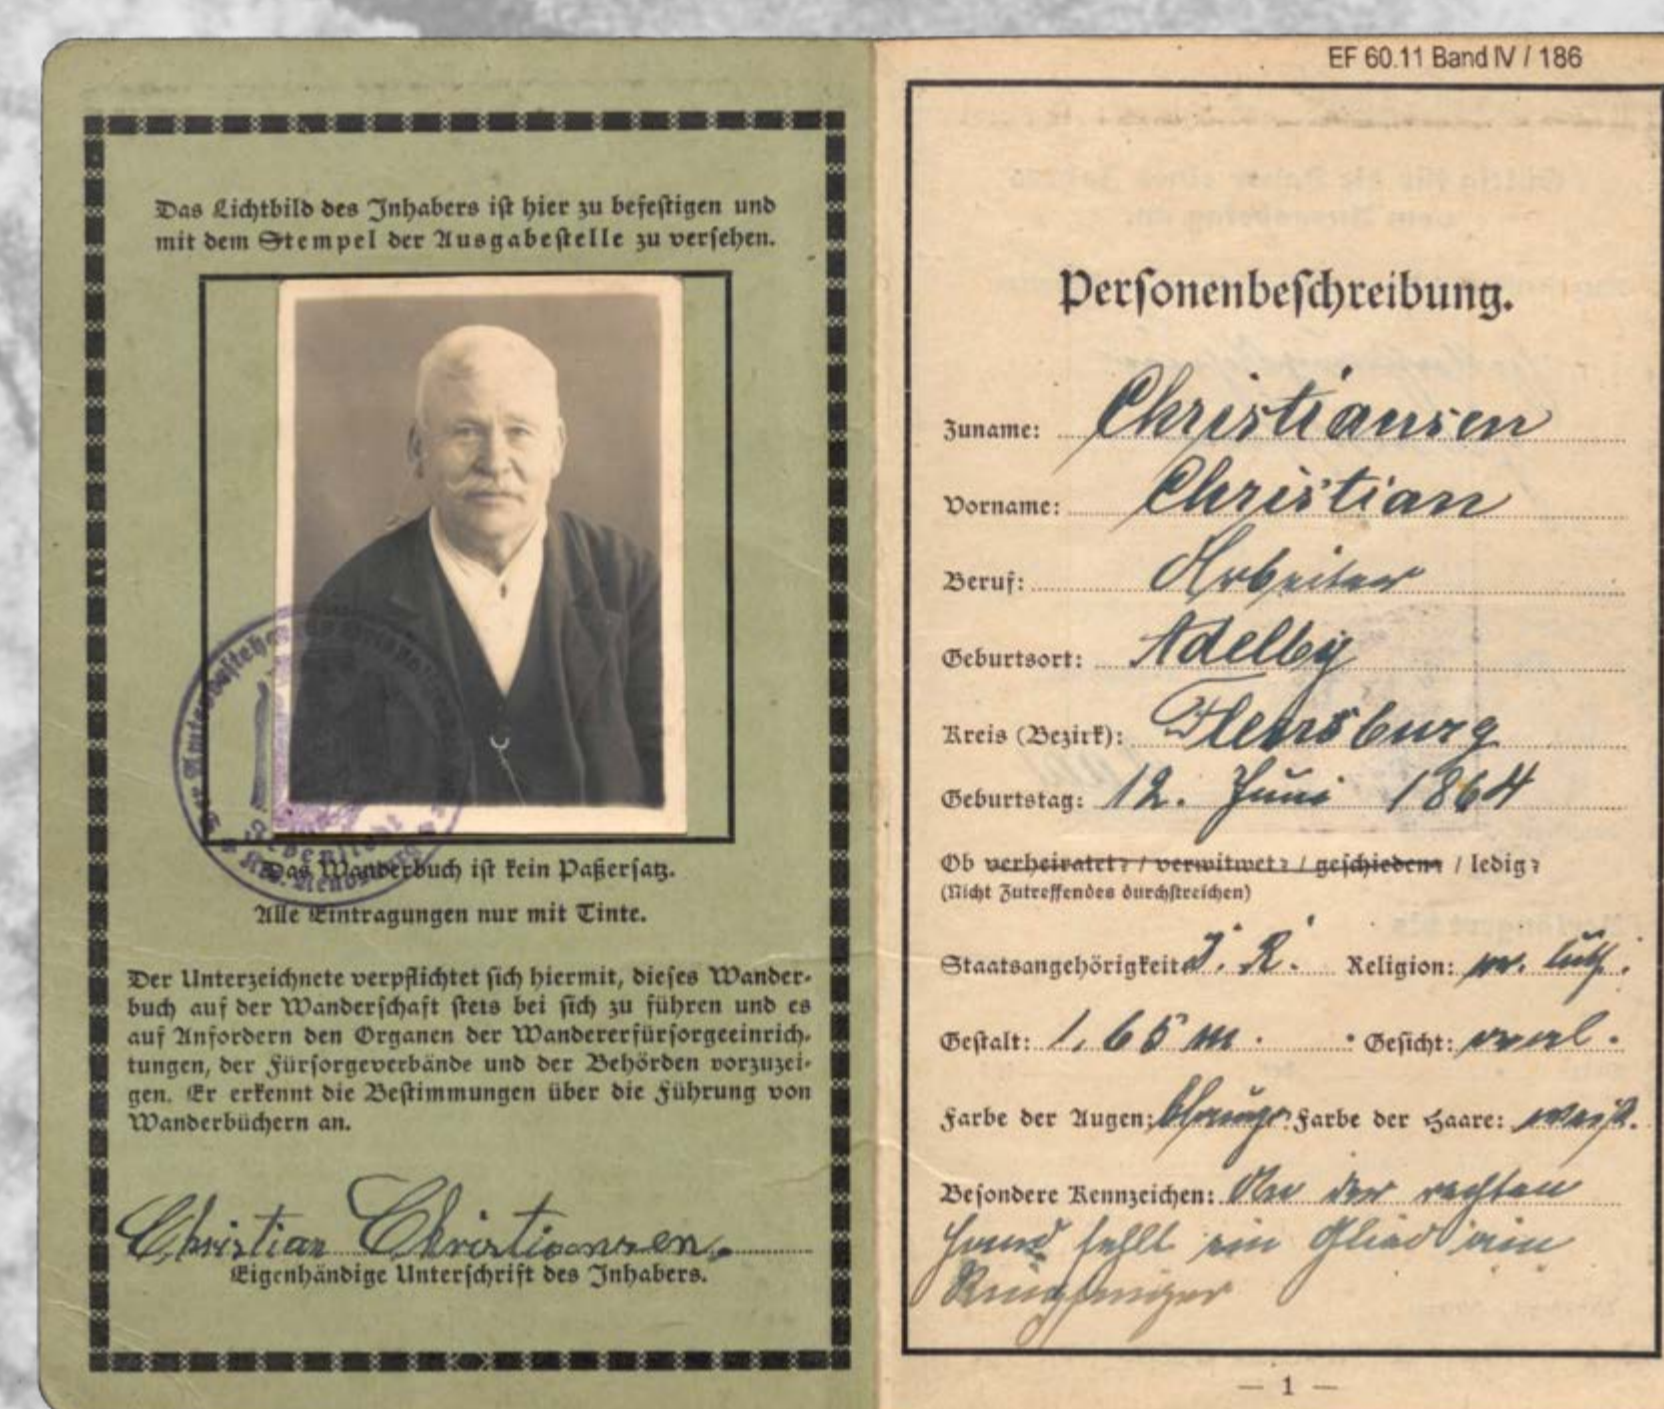 Das Lichtbild des Inhabers ist hier zu befestigen und
mit dem Stempel der Ausgabestelle zu versehen.
Das Wanderbuch ist kein Paßersatz.
Alle Eintragungen nur mit Tinte.
Der Unterzeichnete verpflichtet sich hiermit, dieses Wander-
buch auf der Wanderschaft stets bei sich zu führen und es
auf Anfordern den Organen der Wandererfürsorgeeinrich-
tungen, der Fürsorgeverbände und der Behörden vorzuzei-
gen. Er erkennt die Bestimmungen über die Führung von
Wanderbüchern an.
Christian Christiansen.
Eigenhändige Unterschrift des Inhabers.
EF 60.11 Band IV / 186
Personenbeschreibung.
Zuname: Christiansen
Vorname: Christian
Beruf: Arbeiter
Geburtsort: Adelby
Kreis (Bezirk): Flensburg
Geburtstag: 12. Juni 1864
Ob verheiratet? / verwitwet? / geschieden? / ledig?
(Nicht Zutreffendes durchstreichen)
Staatsangehörigkeit: D. R. Religion: ev. luth.
Gestalt: 1,65 m. Gesicht: oval.
Farbe der Augen: Farbe der Haare: weiß.
Besondere Kennzeichen: An der rechten
Hand fehlt ein Glied am
Ringfinger
— 1 —